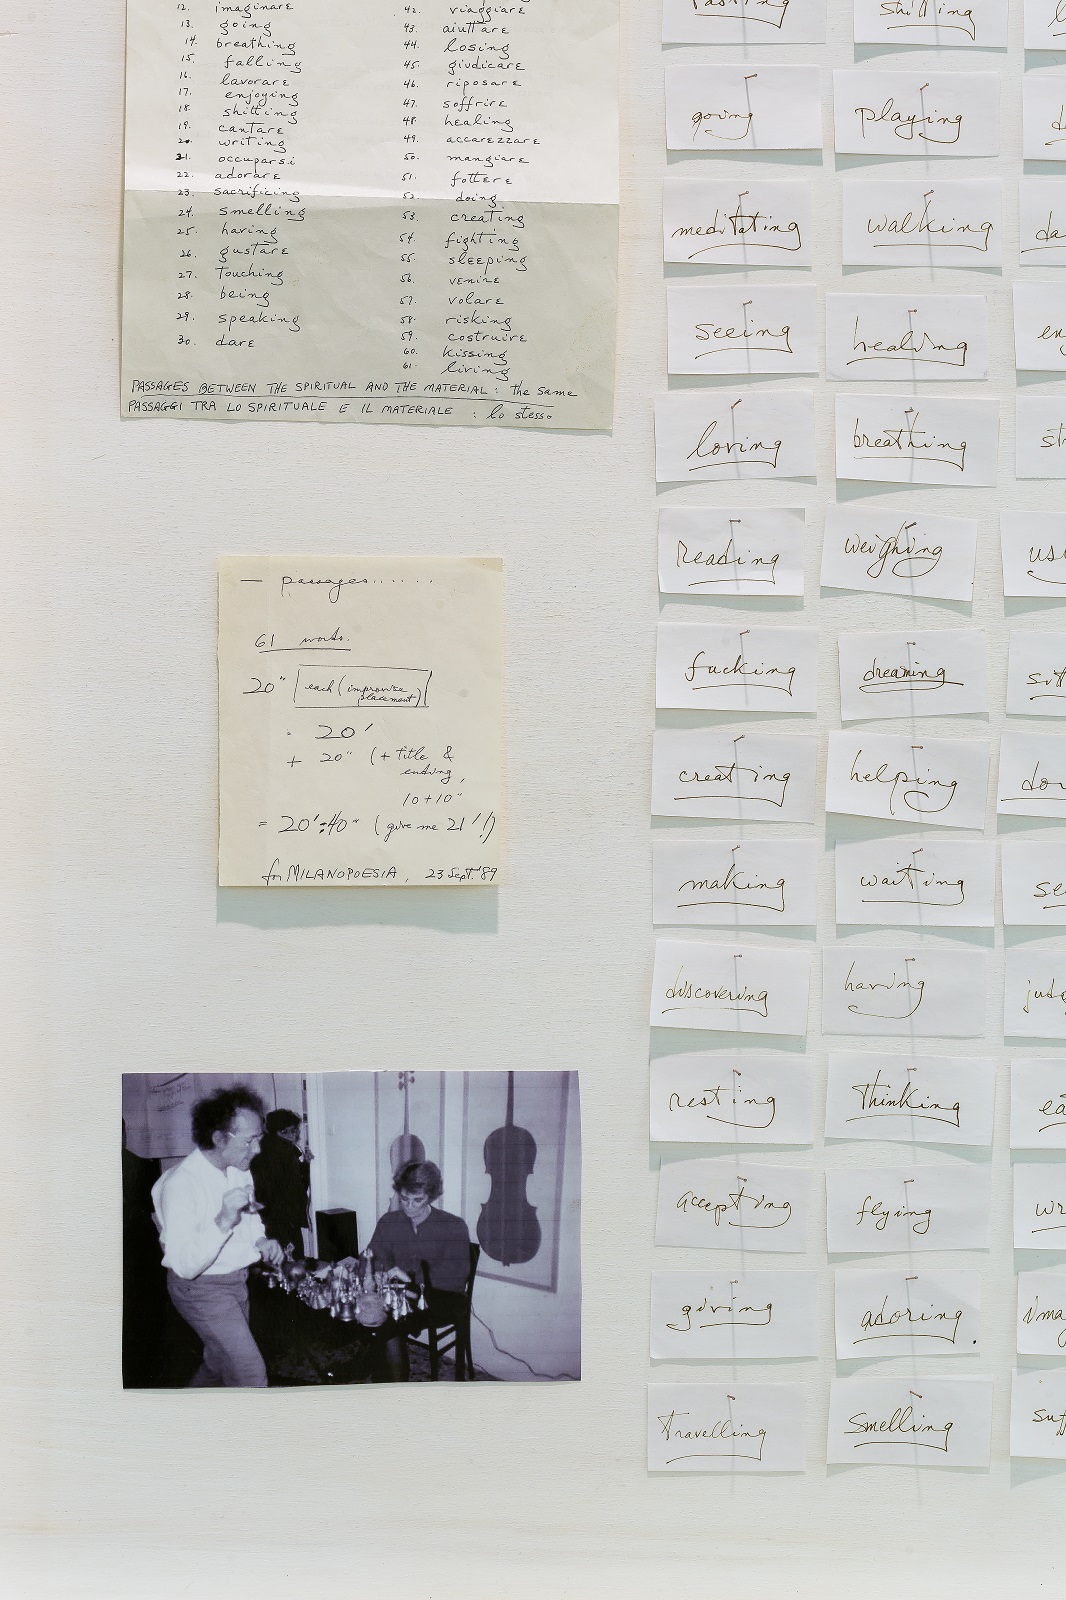 12. imaginare
13. going
14. breathing
15. falling
16. lavorare
17. enjoying
18. shitting
19. cantare
20. writing
21. occuparsi
22. adorare
23. sacrificing
24. smelling
25. having
26. gustare
27. Touching
28. being
29. speaking
30. dare
42. viaggiare
43. aiutare
44. losing
45. giudicare
46. riposare
47. soffrire
48. healing
49. accarezzare
50. mangiare
51. fottere
52. doing
53. creating
54. fighting
55. sleeping
56. venire
57. volare
58. risking
59. costruire
60. kissing
61. living
PASSAGES BETWEEN THE SPIRITUAL AND THE MATERIAL: the same
PASSAGGI TRA LO SPIRITUALE E IL MATERIALE : lo stesso
— passages......
61 words.
20" each (improvise
placement)
20'
+ 20" (+ title &
ending,
10+10"
= 20':40" (give me 21'!)
for MILANOPOESIA, 23 Sept. '89
shitting
going
playing
meditating
walking
da
seeing
healing
en
loving
breathing
st
reading
weighing
us
fucking
dreaming
sit
creating
helping
do
making
waiting
se
discovering
having
jud
resting
Thinking
ea
accepting
flying
wr
giving
adoring.
ima
Travelling
Smelling
suf